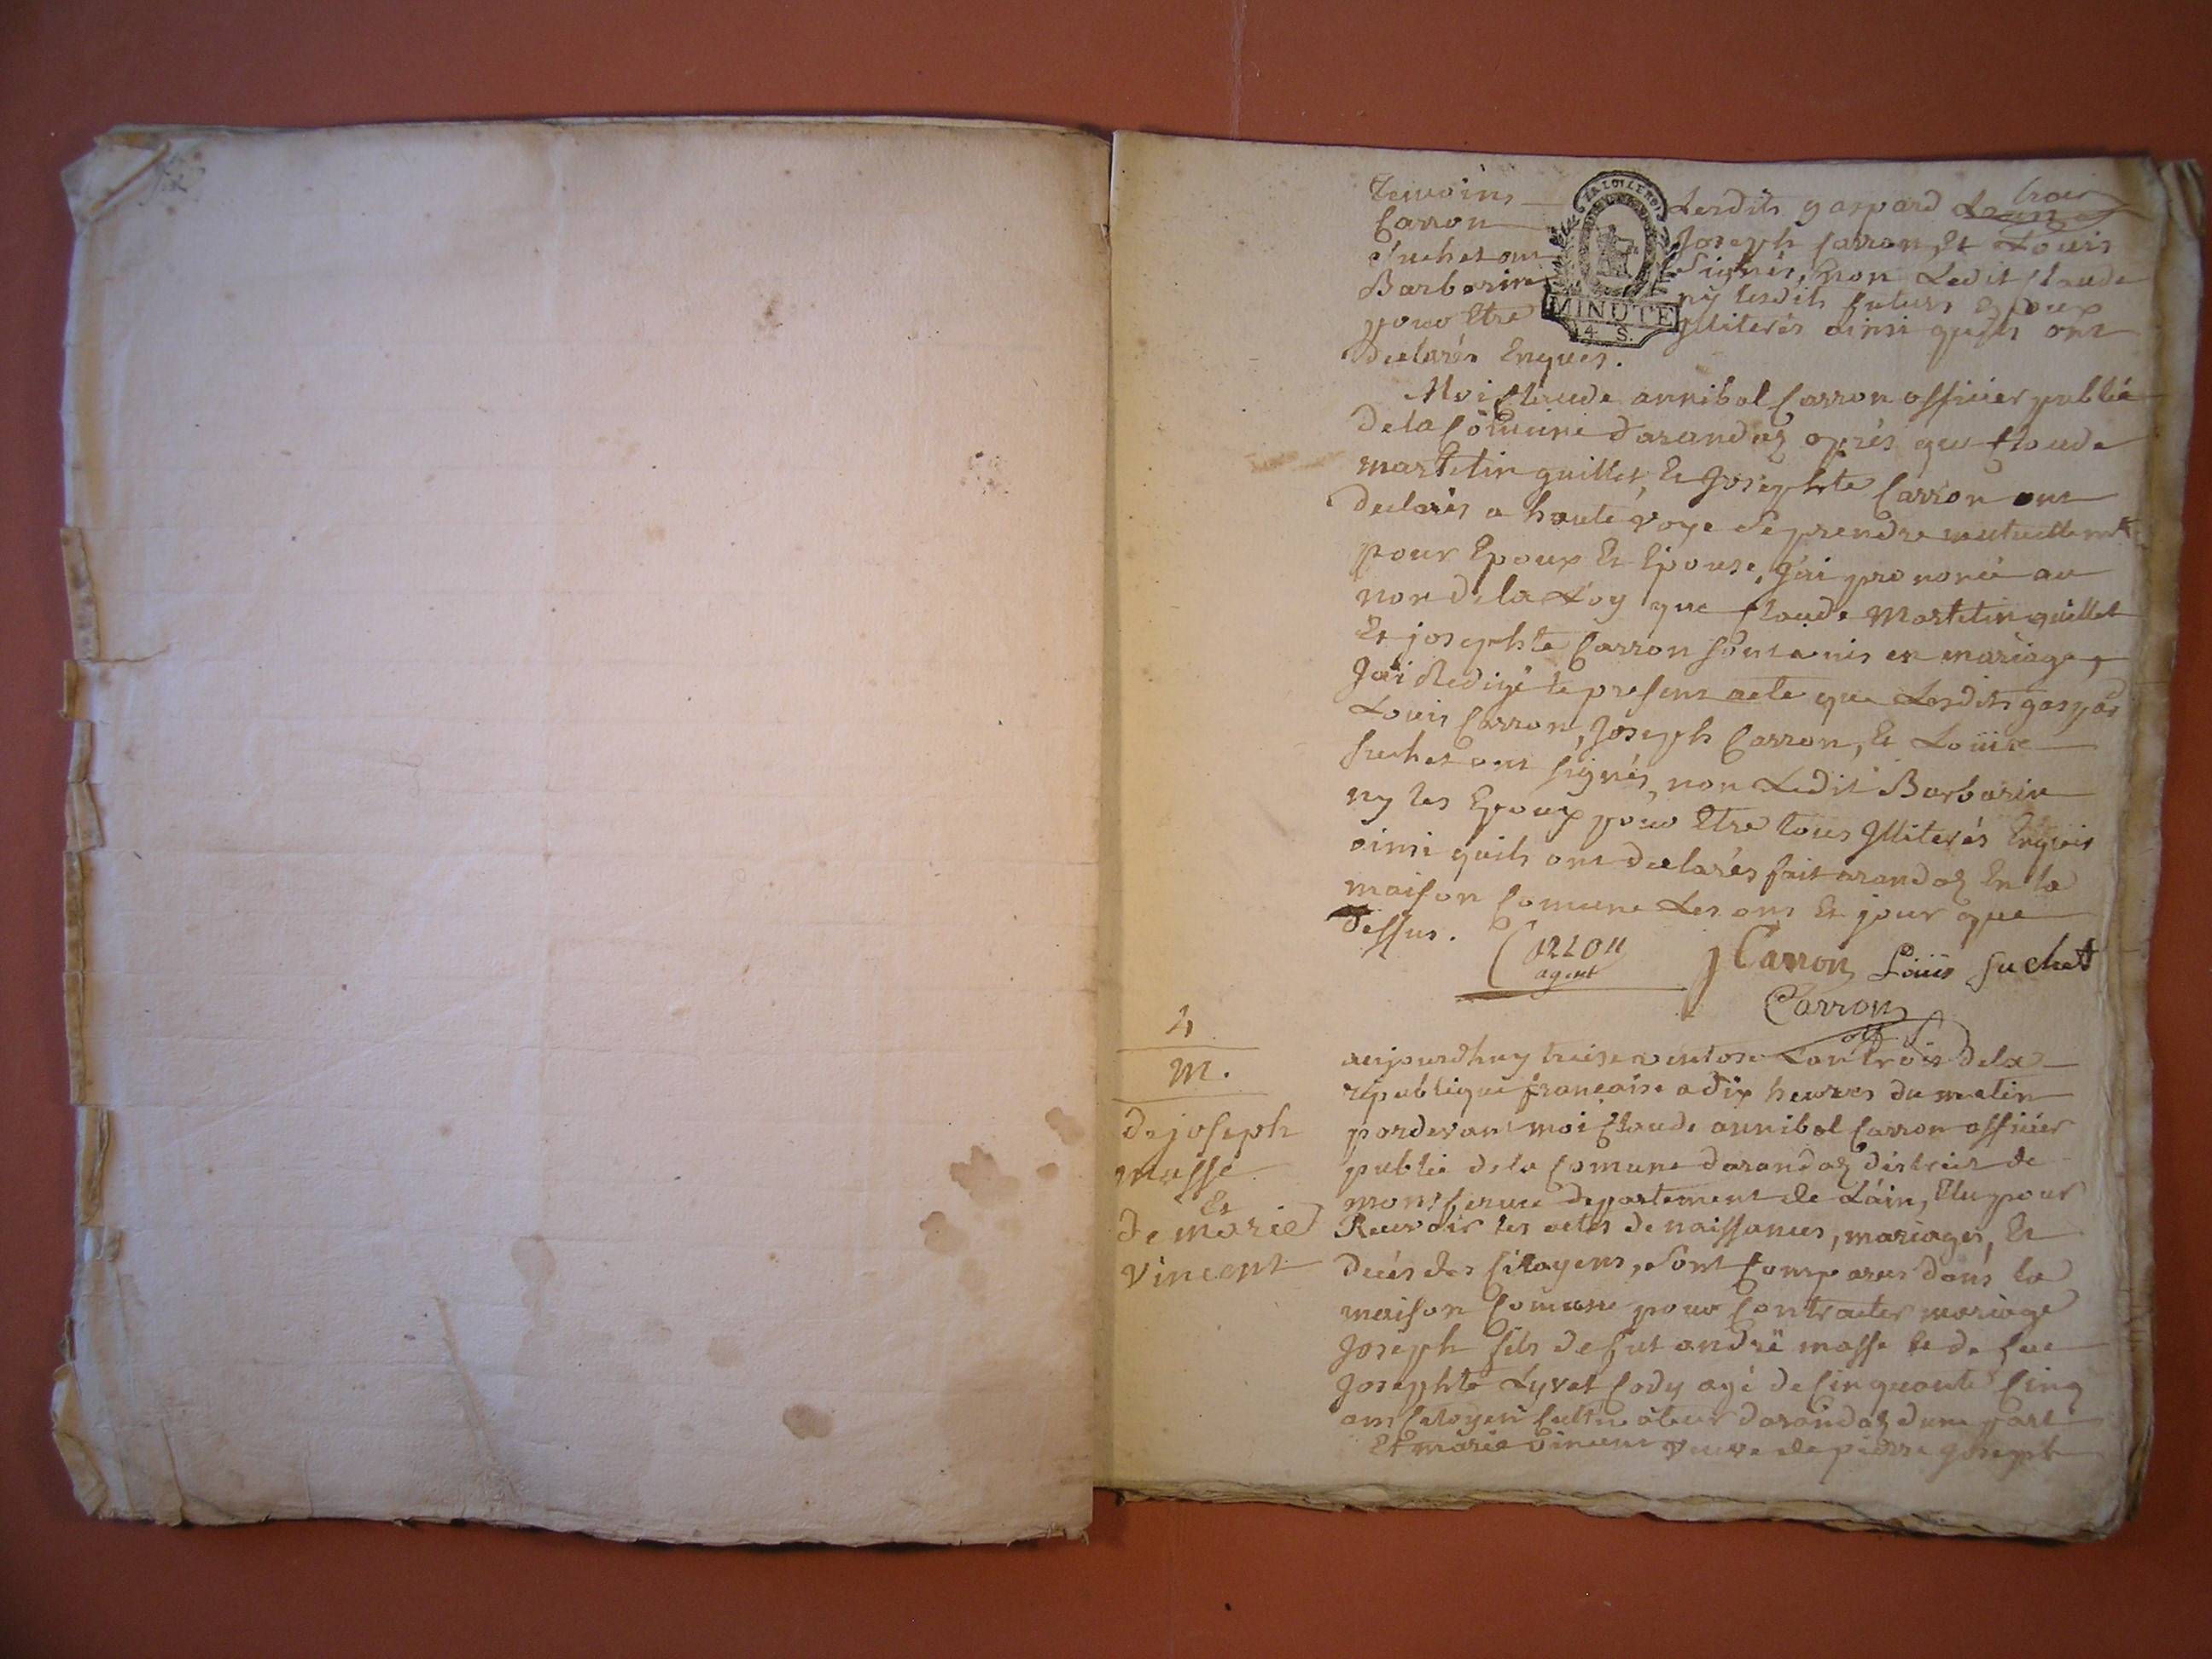 temoins Lesdits gaspard Louis
Carron Joseph Carron, Et Louis
Suchet ont Signés, non Ledit Claude
Barbarin ny lesdits futurs Epoux
pour Etre Illiterés ainsi quils ont
declarés Enquis.
LA LOI LE ROI
MINUTE
4 S.
Moi Claude annibal Carron officier public
de la Comune darandaz après que Claude
martelin guillet, Et Josephte Carron ont
declarés a haute voye se prendre mutuellemt
pour Epoux Et Epouse, J'ai prononcé au
nom de la Loy que Claude Martelin guillet
Et josephte Carron sont unis en mariage,
J'ai Redigé le present acte que Lesdits gaspar
Louis Carron, Joseph Carron, Et Louis
suchet ont signés, non Ledit Barbarin
ny les Epoux pour Etre tous Illiterés Enquis
ainsi quils ont declarés fait arandaz En la
maison Comune Les ans Et jour que
dessus.
Carron
agent
J Carron Loüis suchet
Carron
off
4
M.
de joseph
masse
Et
de marie
vincent
aujourdhuy treise ventose Lan trois de la
republique francaise a dix heures du matin
pardevant moi Claude annibal Carron officier
public de la Comune darandaz district de
montferme departement de Láin, Elu pour
Recevoir les actes de naissances, mariages, Et
decés des Citoyens, sont Comparus dans la
maison Comune pour Contracter mariage
Joseph fils de fut andré masse Et de fue
Josephte Lyvet Cody agé de Cinquante Cinq
ans Citoyen Cultivateur darandaz dune part
Et marie vincent veuve de pierre Joseph